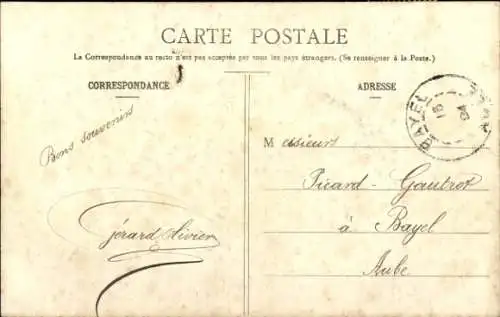 CARTE POSTALE
La Correspondance au recto n'est pas acceptée par tous les pays étrangers. (Se renseigner à la Poste.)
CORRESPONDANCE
Bons souvenirs
Gérard Livier
ADRESSE
BAYEL
AUBE
Messieurs
Picard-Gautrot
à Bayel
Aube